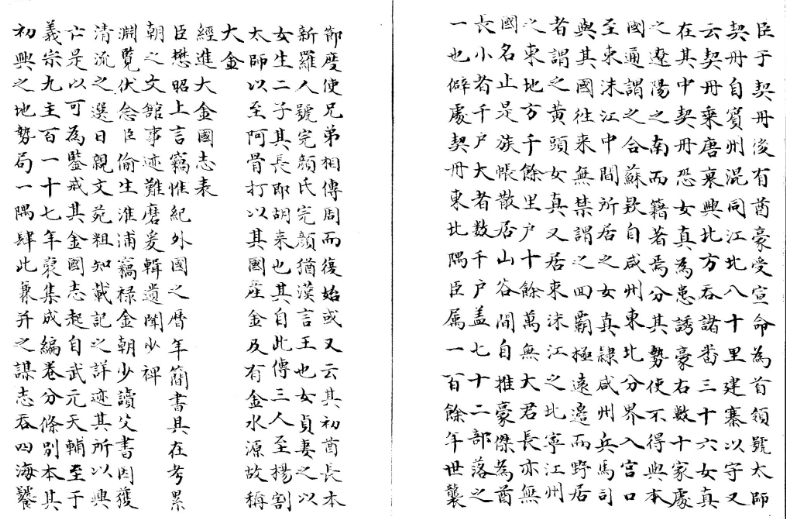 臣于契丹後有酋豪受宣命為首領號太師
契丹自賓州混同江北八十里建寨以守又
云契丹乘唐衰興北方吞諸番三十六女真
在其中契丹恐女真為患誘豪右數十家處
之遼陽之南而籍著焉分其勢使不得與本
國通謂之合蘇欵自咸州東北分界入宮口
至束沫江中間所居之女真隷咸州兵馬司
與其國往来無禁謂之四霸極遠邉而野居
者謂之黄頭女真又居束沫江之北寧江州
之東地方千餘里户十餘萬無大君長亦無
國名止是族帳散居山谷間自推豪傑為酋
長小者千户大者數千户盖七十二部落之
一也僻處契丹東北隅臣属一百餘年世襲
節度使兄弟相傳周而復始或又云其初酋長本
新羅人號完顔氏完顔猶漢言王也女貞妻之以
女生二子其長即胡来也其自此傳三人至揚割
太師以至阿骨打以其國産金及有金水源故稱
大金
經進大金國志表
臣懋昭上言竊惟紀外國之暦年簡書具在考累
朝之文舘事迹難磨爰輯遺聞少裨
淵覽伏念臣偷生淮浦竊禄金朝少讀父書因獲
清流之選日親文苑粗知載記之詳迹其所以興
亡是以可為鑒戒其金國志起自武元天輔至于
義宗九主百一十七年裒集成編卷分條别本其
初興之地勢局一隅肆此兼并之謀志吞四海饕